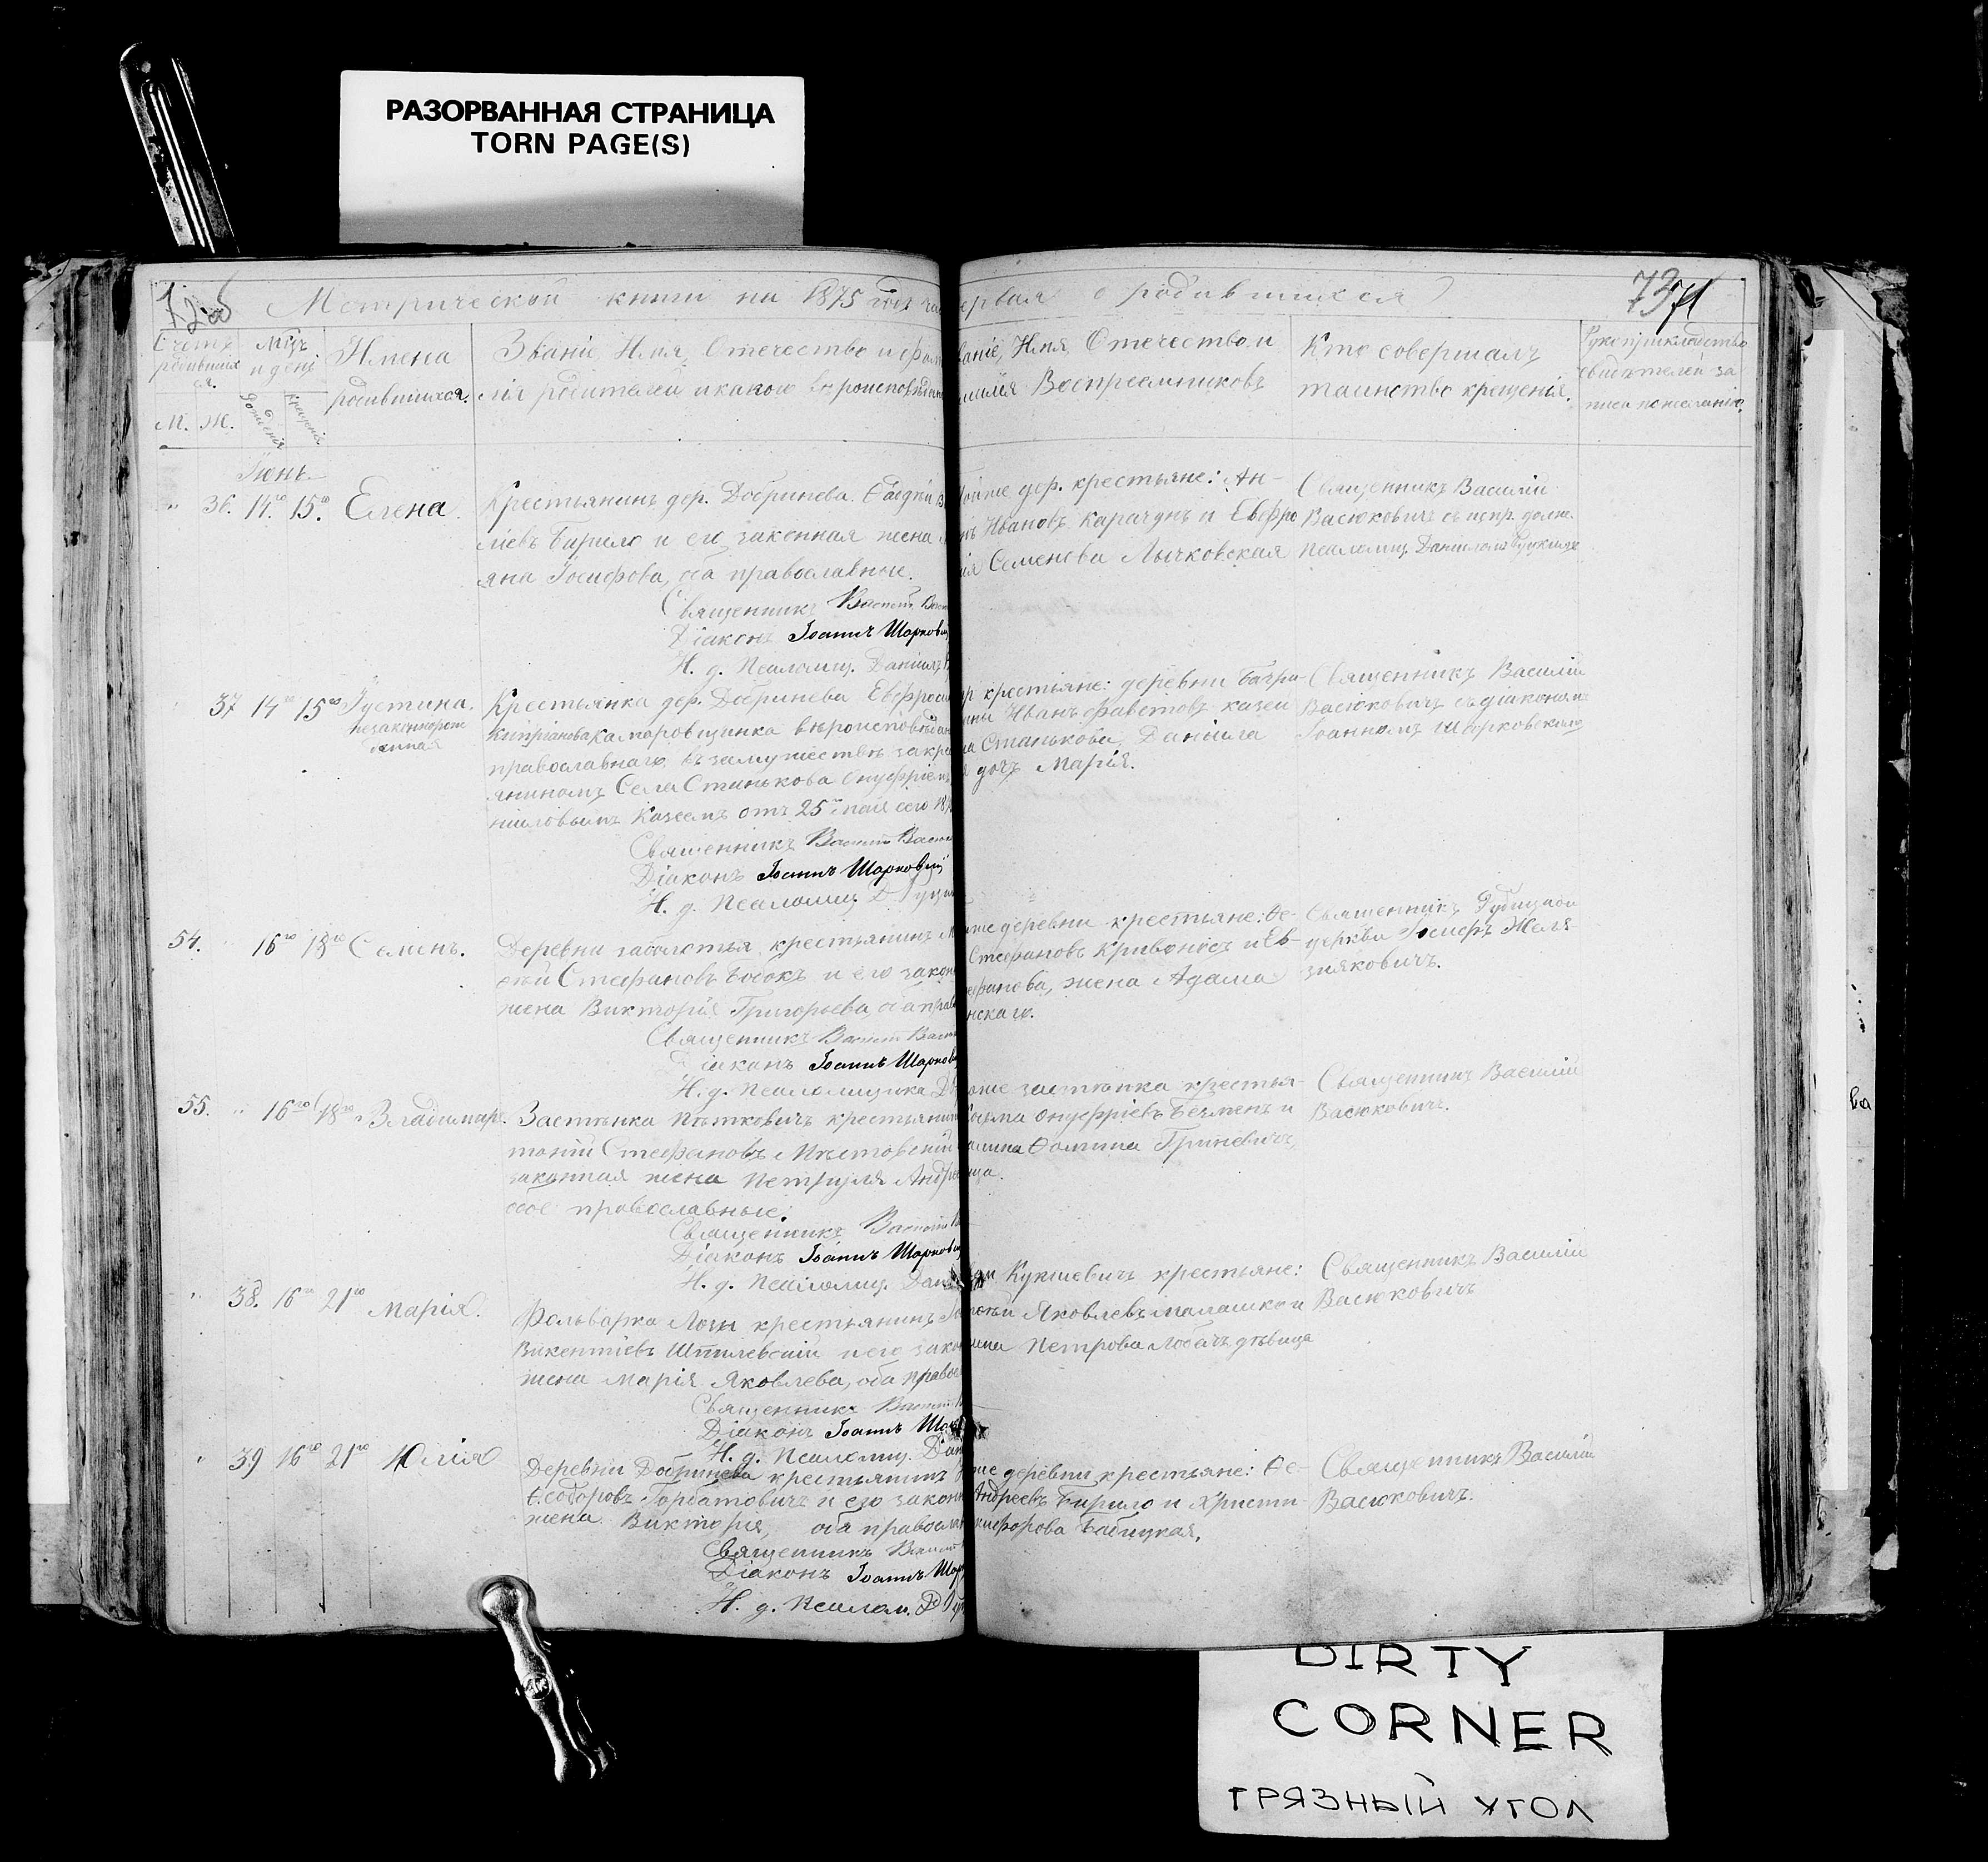 РАЗОРВАННАЯ СТРАНИЦА
TORN PAGE(S)
Метрической книги на 1875 годъ ча
ервая о родившихся
73
Счетъ родившихся.
М. Ж.
Мѣц и дни
рожденія
крещенія
Имена
родившихся.
Званіе, Имя, Отечество и фам
лія родителей и какого вѣроисповѣдан
ваніе, Имя, Отечество и
милія Воспреемниковъ
Кто совершалъ
таинство крещенія.
Рукоприкладство
свидѣтелей за
писи по желанію.
Іюнь
36. 14го 15го Елена.
Крестьянинъ дер. Добринева
ліевъ Бирило и его законная жена
яна Іосифова, оба православные.
Священникъ Василій
Діаконъ Іоаннъ Шарковс
И. д. Псаломщ. Даніилъ
дер. крестьяне: Ан-
Ивановъ Карачунъ и Евфро
ія Семенова Лычковская
Священникъ Василій
Васюковичъ съ испр. долж.
Псаломщ. Данииломъ
37 14го 15го Густина.
незаконнорож
денная
Крестьянка дер. Добринева Евфроси
Кипріанова Камаровщинка вѣроисповѣдан
православнаго, въ замужествѣ за кре
яниномъ Села Станькова Онуфріемъ
ниловымъ Казеемъ отъ 25го мая сего 18
Священникъ Василій Васю
Діаконъ Іоаннъ Шарковскій
И. д. Псаломщ. Д.
крестьяне: деревни
Иванъ Фавстовъ казеи
на Станькова, Даніила
дочь Марія.
Священникъ Василій
Васюковичъ съ діакономъ
Іоанномъ Шарковскимъ
54. 16го 18го Семенъ.
Деревни заболотья крестьянинъ
Стефановъ и его закон
жена Викторія Григорьева, оба прав
Священникъ Василій Васю
Діаконъ Іоаннъ Шарков
И. д. Псаломщика Д
же деревни крестьяне: Ѳе-
Стефановъ Кривоносъ и Ев-
фанова, жена Адама
нскаго.
Священникъ
церкви Іосифъ Желя-
зняковичъ.
55. 16го 18го Владимиръ.
Застѣнка Пятковичъ крестьянин
тоній Стефановъ Мѣстовскій
законная жена Петруля Андре
обое православные.
Священникъ Василій
Діаконъ Іоаннъ Шарков
И. д. Псаломщ. Дан
же застѣнка крестья-
Онуфріевъ и
Ѳомина Гриневичъ,
ица.
Священникъ Василій
Васюковичъ.
38. 16го 21го Марія.
Фольварка Лозы крестьянинъ
Викентіевъ Шпилевскій и его зако
жена Марія Яковлева, оба право
Священникъ Василій
Діаконъ Іоаннъ Шар
И. д. Псаломщ. Дан
Кукшевичъ крестьяне:
Яковлевъ Малашко и
Петрова Лобачъ дѣвица
Священникъ Василій
Васюковичъ
39 16го 21го Юлія
Деревни Добринева крестьянинъ
Ѳеодоровъ Горбатовичъ и его закон
жена Викторія, оба правосла
Священникъ Василій
Діаконъ Іоаннъ Шар
И. д. Псалом. Д
же деревни крестьяне: Ѳе-
Андреевъ Бирило и Христи-
кифорова Бабицкая.
Священникъ Василій
Васюковичъ.
DIRTY
CORNER
ГРЯЗНЫЙ УГОЛ